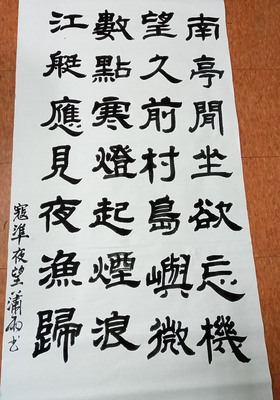 南亭閒坐欲忘機
望久前村島嶼微
數點寒燈起煙浪
江艇應見夜漁歸
寇準夜望 瀟雨书